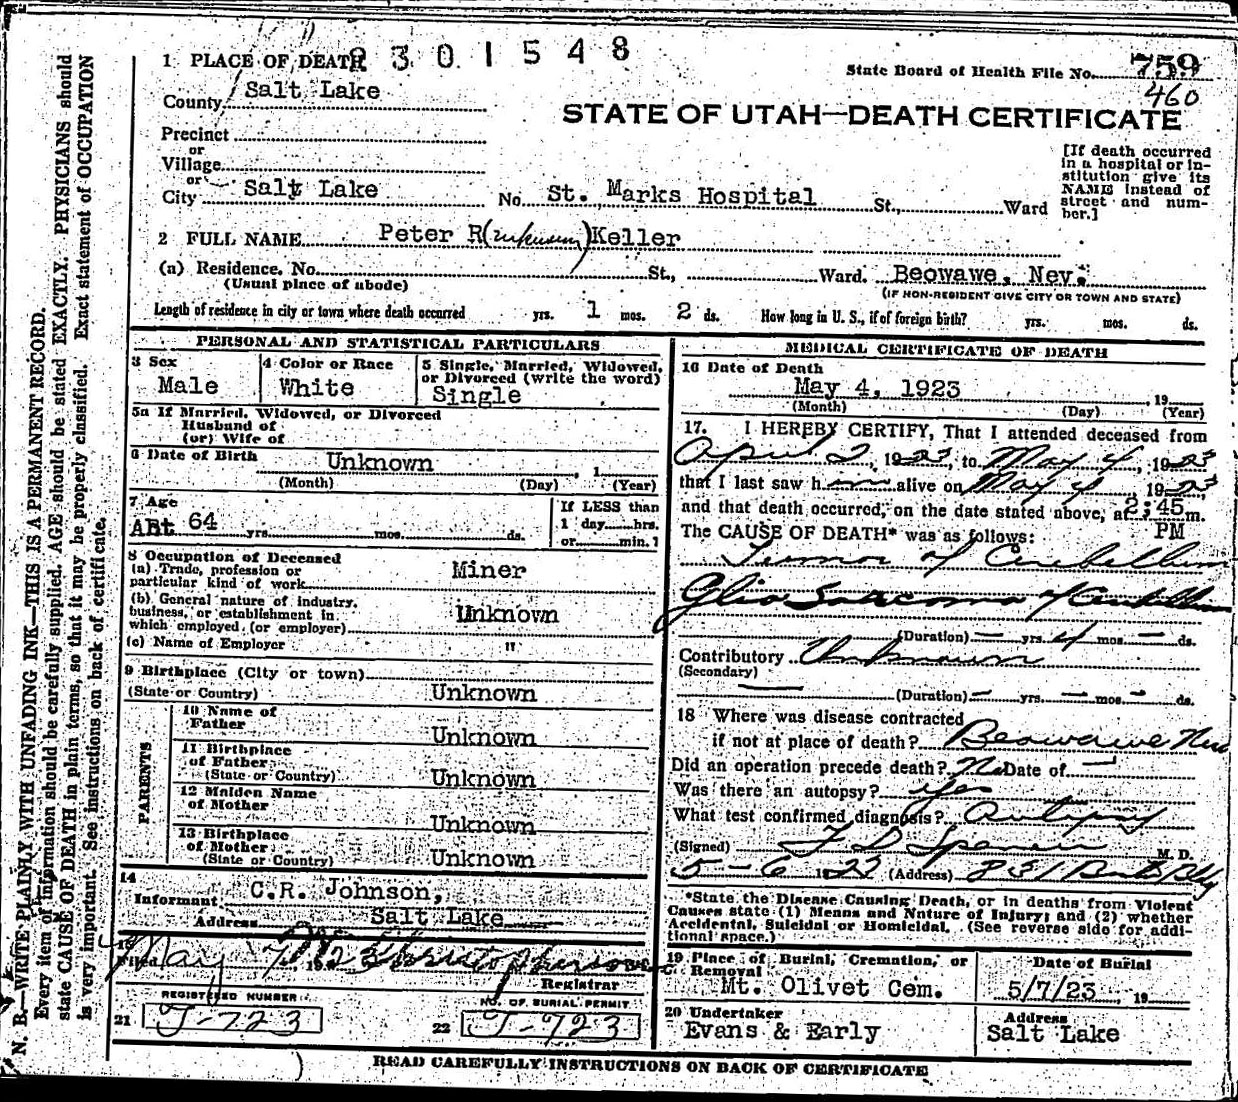 2301548
1 PLACE OF DEATH
State Board of Health File No. 759
460
County Salt Lake
STATE OF UTAH—DEATH CERTIFICATE
Precinct
or
Village
or
City Salt Lake No. St. Marks Hospital St., Ward
[If death occurred in a hospital or institution give its NAME instead of street and number.]
2 FULL NAME Peter R(unknown)Keller
(a) Residence. No. St., Ward. Beowawe, Nev.
(Usual place of abode) (IF NON-RESIDENT GIVE CITY OR TOWN AND STATE)
Length of residence in city or town where death occurred yrs. 1 mos. 2 ds. How long in U. S., if of foreign birth? yrs. mos. ds.
PERSONAL AND STATISTICAL PARTICULARS
3 Sex Male
4 Color or Race White
5 Single, Married, Widowed, or Divorced (write the word) Single
5a If Married, Widowed, or Divorced
Husband of
(or) Wife of
6 Date of Birth Unknown, 1
(Month) (Day) (Year)
7 Age
Abt 64 yrs. mos. ds.
If LESS than
1 day hrs.
or min.?
8 Occupation of Deceased
(a) Trade, profession or
particular kind of work Miner
(b) General nature of industry,
business, or establishment in
which employed (or employer) Unknown
(c) Name of Employer "
9 Birthplace (City or town)
(State or Country) Unknown
PARENTS
10 Name of
Father Unknown
11 Birthplace
of Father
(State or Country) Unknown
12 Maiden Name
of Mother Unknown
13 Birthplace
of Mother
(State or Country) Unknown
14
Informant C.R. Johnson,
Address Salt Lake
15
Filed May 7, 1923
Registrar
REGISTERED NUMBER
21 J-723
NO. OF BURIAL PERMIT
22 J-723
MEDICAL CERTIFICATE OF DEATH
16 Date of Death
May 4, 1923, 19
(Month) (Day) (Year)
17. I HEREBY CERTIFY, That I attended deceased from
April 2, 1923, to May 4, 1923
that I last saw him alive on May 4 1923
and that death occurred, on the date stated above, at 2:45 m.
PM
The CAUSE OF DEATH* was as follows:
Tumor of Cerebellum
Glio Sarcoma of Cerebellum
(Duration) — yrs. 4 mos. — ds.
Contributory Unknown
(Secondary)
(Duration) — yrs. — mos. — ds.
18 Where was disease contracted
if not at place of death? Beowawe Nev
Did an operation precede death? No Date of —
Was there an autopsy? yes
What test confirmed diagnosis? Autopsy
(Signed) F D Spencer M. D.
5-6 1923 (Address)
*State the Disease Causing Death, or in deaths from Violent
Causes state (1) Means and Nature of Injury; and (2) whether
Accidental, Suicidal or Homicidal. (See reverse side for addi-
tional space.)
19 Place of Burial, Cremation, or Removal
Mt. Olivet Cem.
Date of Burial
5/7/23, 19
20 Undertaker
Evans & Early
Address
Salt Lake
READ CAREFULLY INSTRUCTIONS ON BACK OF CERTIFICATE
N. B.—WRITE PLAINLY WITH UNFADING INK—THIS IS A PERMANENT RECORD.
Every item of information should be carefully supplied. AGE should be stated EXACTLY. PHYSICIANS should
state CAUSE OF DEATH in plain terms, so that it may be properly classified. Exact statement of OCCUPATION
is very important. See instructions on back of certificate.